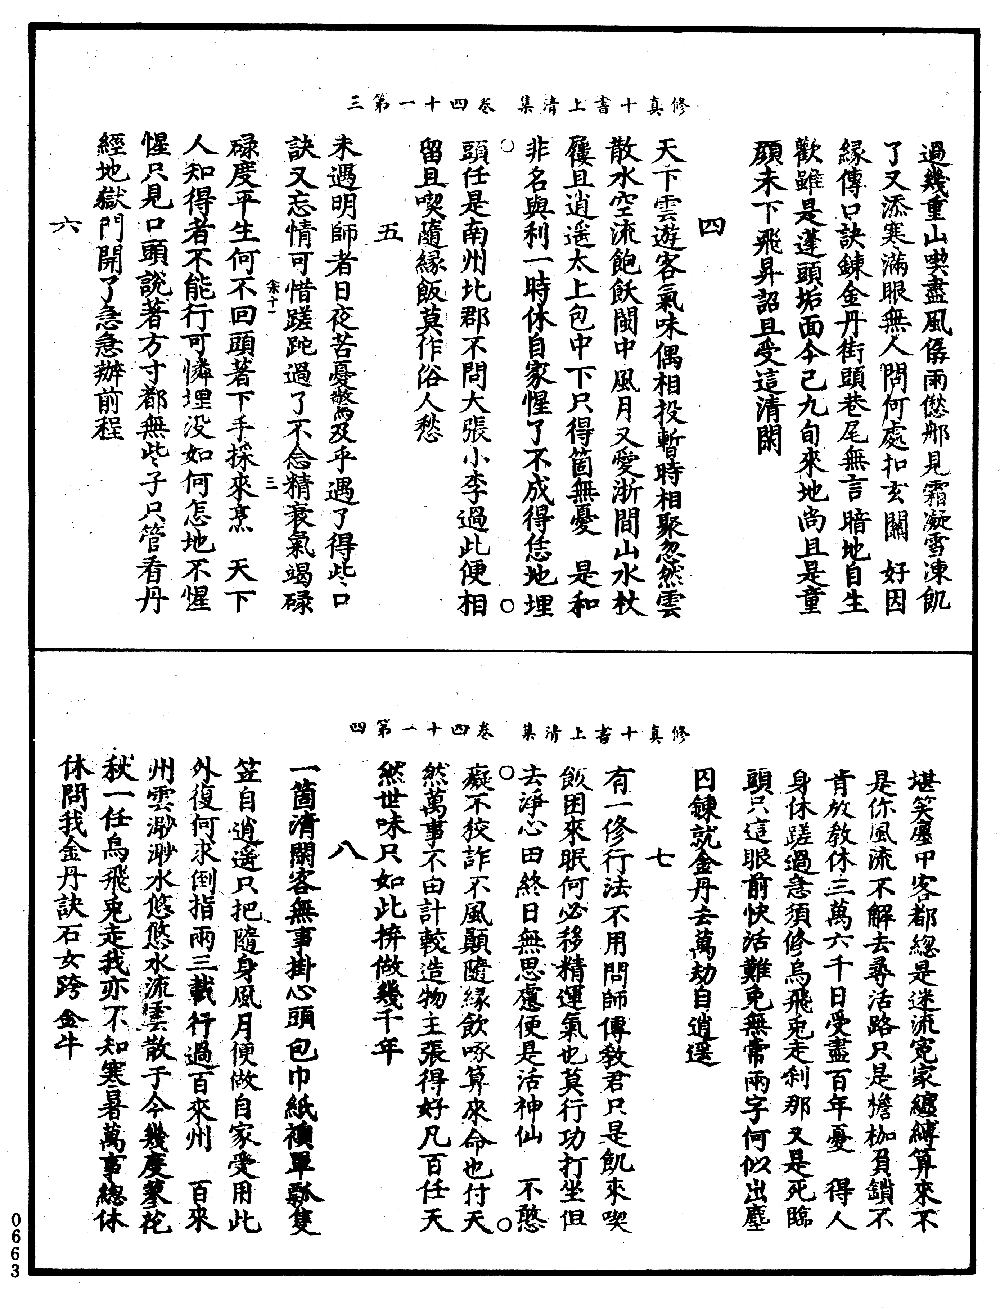 修真十書上清集　卷四十一第三
過幾重山喫盡風僝雨僽那見霜凝雪凍飢
了又添寒滿眼無人問何處扣玄關　好因
緣傳口訣鍊金丹街頭巷尾無言暗地自生
歡雖是蓬頭垢面今已九旬來地尚且是童
顏未下飛昇詔且受這清閑
四
天下雲遊客氣味偶相投暫時相聚忽然雲
散水空流飽飫閩中風月又愛浙間山水杖
屨且逍遥太上包中下只得箇無憂　是和
非名與利一時休自家惺了不成得恁地埋
頭任是南州北郡不問大張小李過此便相
留且喫隨緣飯莫作俗人愁
五
未遇明師者日夜苦憂驚及乎遇了得些口
訣又忘情可惜蹉跎過了不念精衰氣竭碌
碌度平生何不回頭著下手採來烹　天下
人知得者不能行可憐埋没如何怎地不惺
惺只見口頭說著方寸都無些子只管看丹
經地獄門開了急急辦前程
六
修真十書上清集　卷四十一第四
堪笑塵中客都總是迷流寃家纏縛算來不
是你風流不解去尋活路只是擔枷負鎖不
肯放教休三萬六千日受盡百年憂　得人
身休蹉過急須修烏飛兎走刹那又是死臨
頭只這眼前快活難免無常兩字何似出塵
囚鍊就金丹去萬劫自逍遥
七
有一修行法不用問師傳教君只是飢來喫
飯困來眠何必移精運氣也莫行功打坐但
去淨心田終日無思慮便是活神仙　不憨
癡不狡詐不風顛隨緣飲啄算來命也付天
然萬事不由計較造物主張得好凡百任天
然世味只如此拚做幾千年
八
一箇清閑客無事掛心頭包巾紙襖單瓢隻
笠自逍遥只把隨身風月便做自家受用此
外復何求倒指兩三載行過百來州　百來
州雲渺渺水悠悠水流雲散于今幾度蓼花
秋一任烏飛兎走我亦不知寒暑萬事總休
休問我金丹訣石女跨金牛
0663